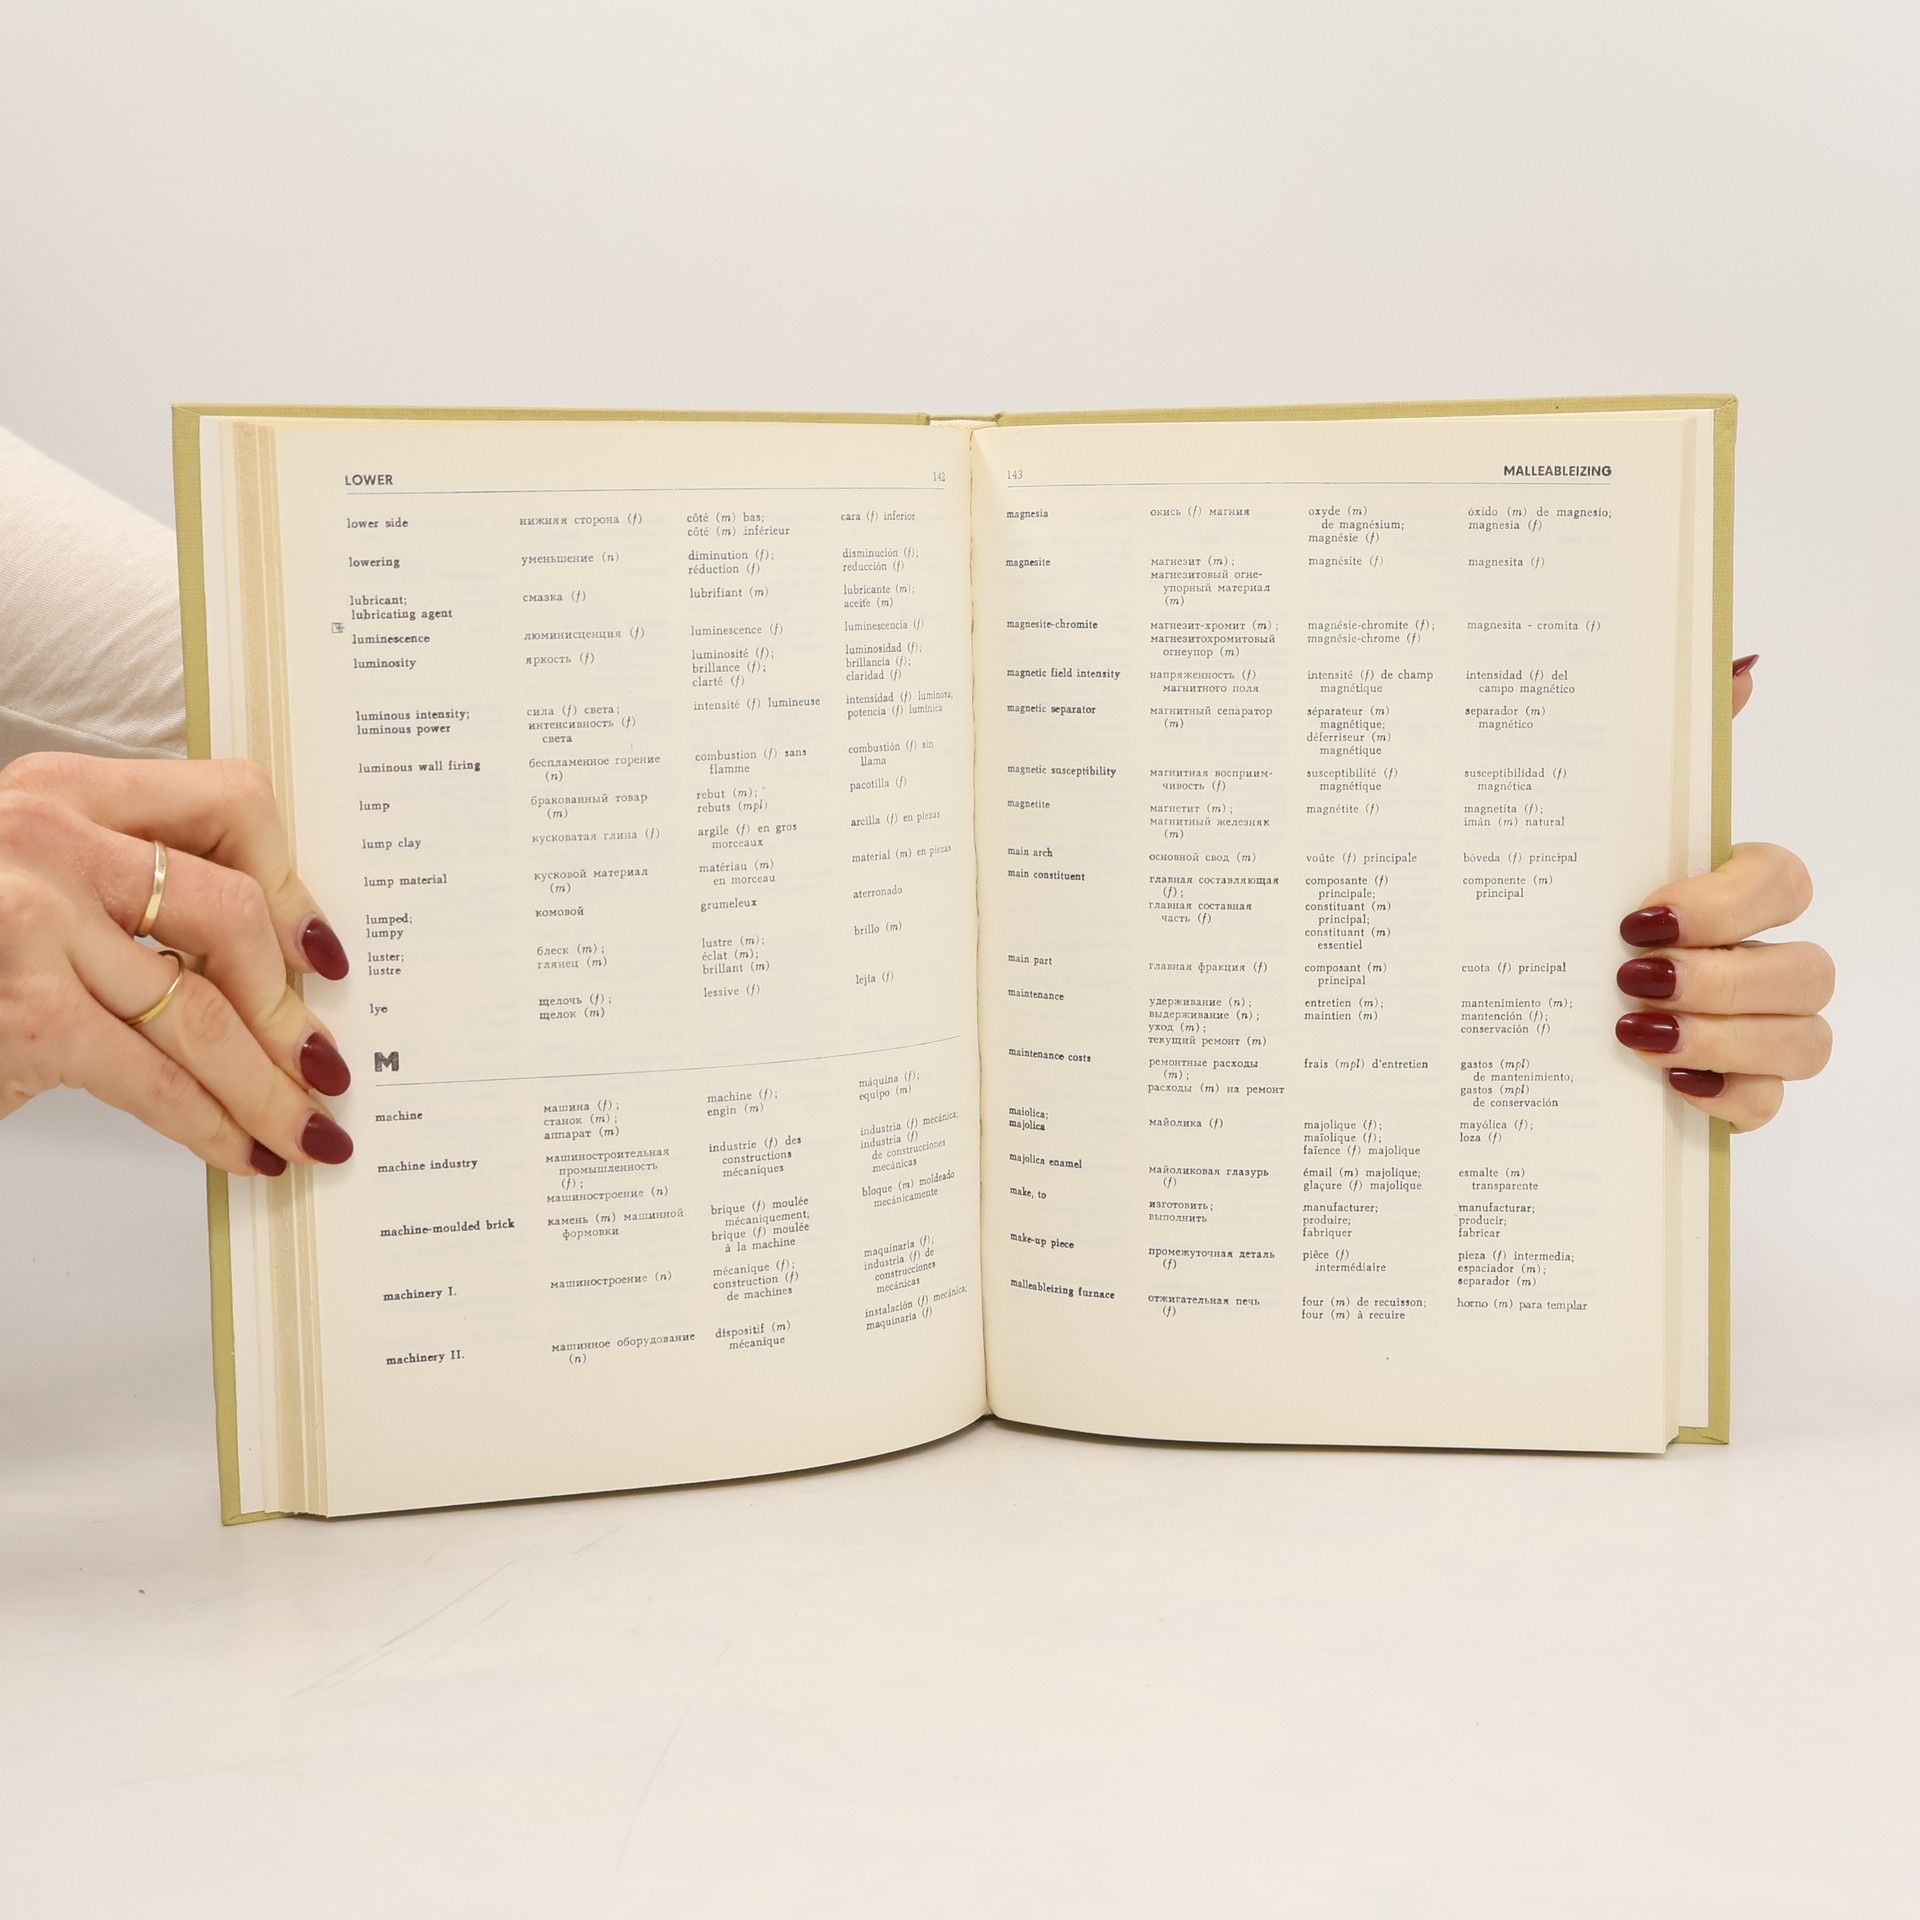 LOWER 142
lower side нижняя сторона (f) côté (m) bas; cara (f) inferior
côté (m) inférieur
lowering уменьшение (n) diminution (f); disminución (f);
réduction (f) reducción (f)
lubricant; смазка (f) lubrifiant (m) lubricante (m);
lubricating agent aceite (m)
luminescence люминисценция (f) luminescence (f) luminescencia (f)
luminosity яркость (f) luminosité (f); luminosidad (f);
brillance (f); brillancia (f);
clarté (f) claridad (f)
luminous intensity; сила (f) света; intensité (f) lumineuse intensidad (f) luminosa;
luminous power интенсивность (f) potencia (f) lumínica
света
luminous wall firing беспламенное горение combustion (f) sans combustión (f) sin
(n) flamme llama
lump бракованный товар rebut (m); pacotilla (f)
(m) rebuts (mpl)
lump clay кусковатая глина (f) argile (f) en gros arcilla (f) en piezas
morceaux
lump material кусковой материал matériau (m) material (m) en piezas
(m) en morceau
lumped; комовой grumeleux aterronado
lumpy
luster; блеск (m); lustre (m); brillo (m)
lustre глянец (m) éclat (m);
brillant (m)
lye щелочь (f); lessive (f) lejía (f)
щелок (m)
M
machine машина (f); machine (f); máquina (f);
станок (m); engin (m) equipo (m)
аппарат (m)
machine industry машиностроительная industrie (f) des industria (f) mecánica;
промышленность constructions industria (f)
(f); mécaniques de construcciones
машиностроение (n) mecánicas
machine-moulded brick камень (m) машинной brique (f) moulée bloque (m) moldeado
формовки mécaniquement; mecánicamente
brique (f) moulée
à la machine
machinery I. машиностроение (n) mécanique (f); maquinaria (f);
construction (f) industria (f) de
de machines construcciones
mecánicas
machinery II. машинное оборудование dispositif (m) instalación (f) mecánica;
(n) mécanique maquinaria (f)
143 MALLEABLEIZING
magnesia окись (f) магния oxyde (m) óxido (m) de magnesio;
de magnésium; magnesia (f)
magnésie (f)
magnesite магнезит (m); magnésite (f) magnesita (f)
магнезитовый огне-
упорный материал
(m)
magnesite-chromite магнезит-хромит (m); magnésie-chromite (f); magnesita - cromita (f)
магнезитохромитовый magnésie-chrome (f)
огнеупор (m)
magnetic field intensity напряженность (f) intensité (f) de champ intensidad (f) del
магнитного поля magnétique campo magnético
magnetic separator магнитный сепаратор séparateur (m) separador (m)
(m) magnétique; magnético
déferriseur (m)
magnétique
magnetic susceptibility магнитная восприим- susceptibilité (f) susceptibilidad (f)
чивость (f) magnétique magnética
magnetite магнетит (m); magnétite (f) magnetita (f);
магнитный железняк imán (m) natural
(m)
main arch основной свод (m) voûte (f) principale bóveda (f) principal
main constituent главная составляющая composante (f) componente (m)
(f); principale; principal
главная составная constituant (m)
часть (f) principal;
constituant (m)
essentiel
main part главная фракция (f) composant (m) cuota (f) principal
principal
maintenance удерживание (n); entretien (m); mantenimiento (m);
выдерживание (n); maintien (m) mantención (f);
уход (m); conservación (f)
текущий ремонт (m)
maintenance costs ремонтные расходы frais (mpl) d'entretien gastos (mpl)
(m); de mantenimiento;
расходы (m) на ремонт gastos (mpl)
de conservación
maiolica; майолика (f) majolique (f); mayólica (f);
majolica maïolique (f); loza (f)
faïence (f) majolique
majolica enamel майоликовая глазурь émail (m) majolique; esmalte (m)
(f) glaçure (f) majolique transparente
make, to изготовить; manufacturer; manufacturar;
выполнить produire; producir;
fabriquer fabricar
make-up piece промежуточная деталь pièce (f) pieza (f) intermedia;
(f) intermédiaire espaciador (m);
separador (m)
malleableizing furnace отжигательная печь four (m) de recuisson; horno (m) para templar
(f) four (m) à recuire